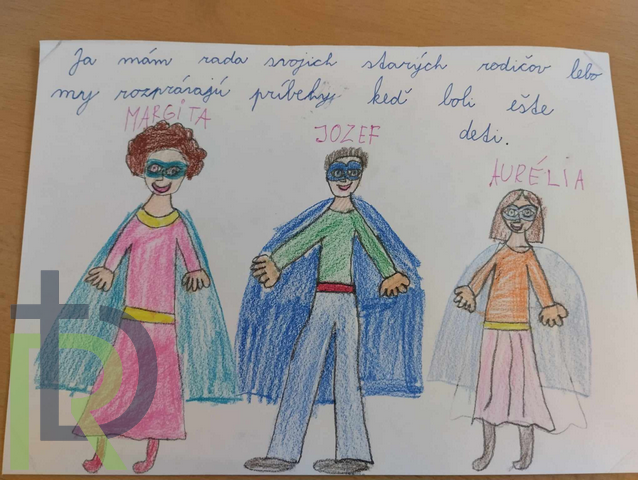 Ja mám rada svojich starých rodičov lebo
my rozprárajú príbehy keď boli ešte
deti.
MARGITA
JOZEF
AURÉLIA